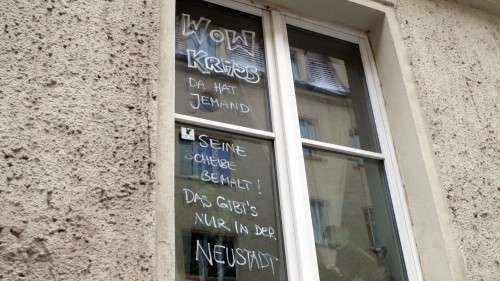 WOW
KRASS
DA HAT
JEMAND
SEINE
SCHEIBE
BEMALT!
DAS GIBT'S
NUR IN DER
NEUSTADT